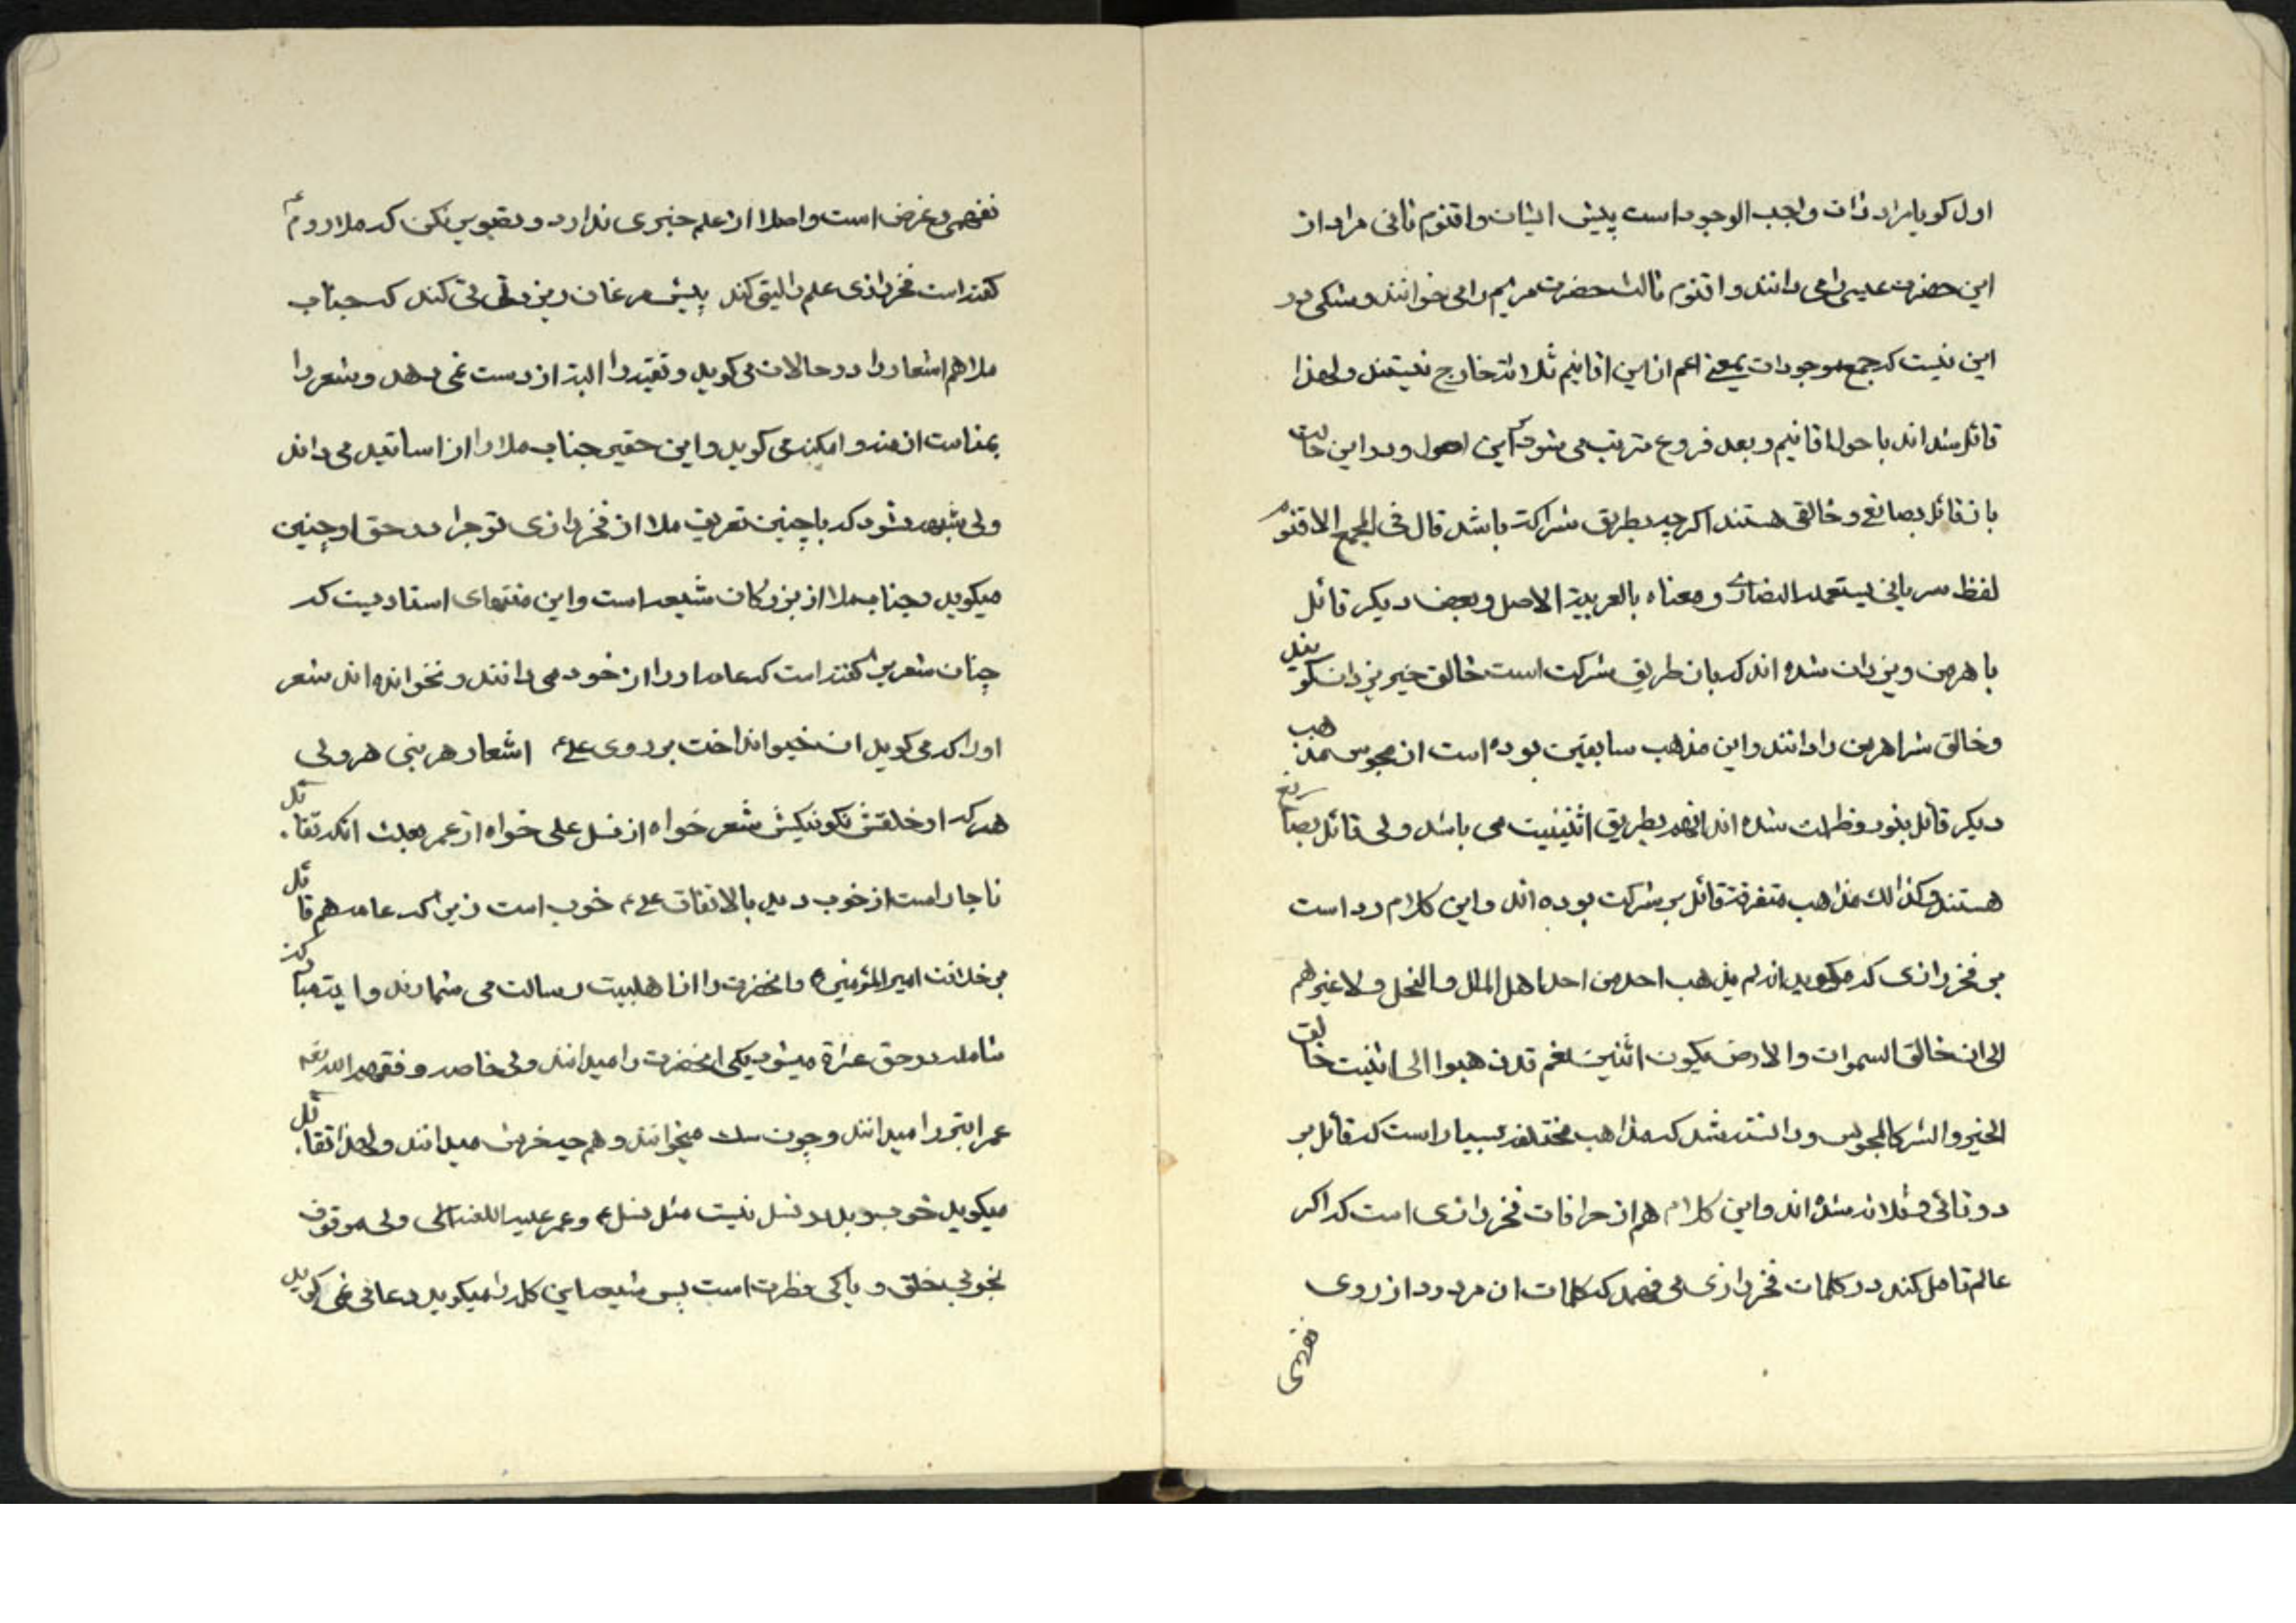 اول کویا مراد ذات واجب الوجود است پیش ایشان و اقنوم ثانی مراد از
این حضرت عیسی را می دانند و اقنوم ثالث حضرت مریم را می خوانند و شکی در
این نیست که جمع موجودات بمعنی اعم از این اقانیم ثلاثه خارج نیستند و لهذا
قائل شده اند باحوال اقانیم و بعد فروع مترتب می شود بر این اصول و در این حالت
باز قائل بصانع و خالقی هستند اکرچه بطریق شراکت باشد قال فی المجمع الاقنوم
لفظ سریانی یستعمله النصاری و معناه بالعربیة الاصل و بعضی دیکر قائل
باهرمن و یزدان شده اند که بان طریق شرکت است خالق خیر یزدان کویند
و خالق شر اهرمن را دانند و این مذهب سابقین بوده است از مجوس مذهب
دیکر قائل بنور و ظلمت شده اند انهم بطریق اثنینیت می باشد ولی قائل بصانع
هستند و کذالک مذاهب متفرقه قائل بر شرکت بوده اند و این کلام رد است
بر فخر رازی که میکوید انه لم یذهب احد من احد اهل الملل و النحل و لا غیرهم
الی ان خالق السموات والارض یکون اثنین نعم قد ذهبوا الی اثنیت خالق
الخیر و الشر کالمجوس و دانسته شد که مذاهب مختلفه بسیار است که قائل بر
دوتائی و ثلاثه شده اند و این کلام هم از خرافات فخر رازی است که اکر
عالم تامل کند در کلمات فخر رازی می فهمد که کلمات ان مردود از روی
نفهمی و غرض است و اصلا از علم خبری ندارد و تعجب مکن که ملا روم
کفته است فخر رازی علم را کند پیش مرغان کند که جناب
ملا هم اشعار را در حالات می کوید و تقیه را البته از دست نمی دهد و شعر را
بمناسبت از منه و امکنه می کوید و این حقیر جناب ملا را از اساتید می داند
ولی شبهه نشود که باچنین تعریف ملا از فخر رازی تو چرا در حق او چنین
میکوید و جناب ملا از بزرکان شیعه است و این منتهای استادیست که
چنان شعر بر کفته است که عامه او را از خود می دانند و نخوانده اند شعر
او را که می کوید ان خیو انداخت بر روی علی ع افتخار هر نبی هر ولی
هر که او خلقش نکو نیکش شمر خواه از نسل علی خواه از عمر بعلت انکه تقائل
ناچار است از خوب دید بالاتفاق علی ع خوب است زیرا که عامه هم قائل
بر خلافت امیر المؤمنین ع و انحضرت را از اهلبیت رسالت می شمارند و ایه مبارکه
شامله در حق عترة میشود یکی انحضرت را میدانند ولی خاصه وفقهم الله تع
عمر ابتر را میدانند و چون سک میخوانند و هم چه خر میدانند و لهذا تقائل
میکوید خوب و بد در نسل نیست مثل نسل ع و عمر علیه اللعنه الی ولی موقوف
بخوبی خلق و پاکی فطرت است پس شیعه این کلمه را میکوید دعا فی نمی کوید
نفهمی